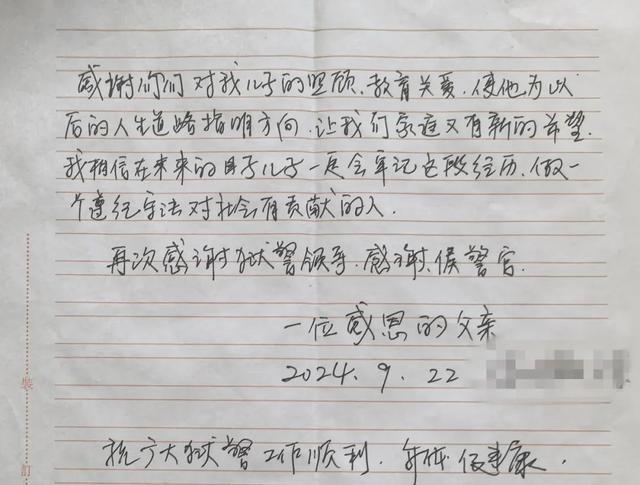 感谢你们对我儿子的照顾、教育关爱，使他为以
后的人生道路指明方向，让我们家庭又有新的希望，
我相信在未来的日子儿子一定会牢记这段经历，做一
个遵纪守法对社会有贡献的人。
再次感谢狱警领导，感谢侯警官。
一位感恩的父亲
2024.9.22
祝广大狱警工作顺利，身体健康。
装
订